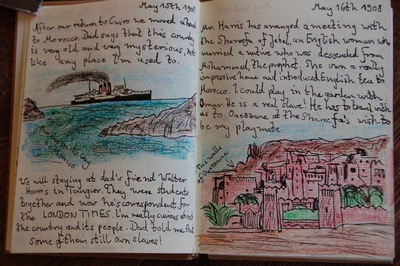 May 15th 1908
After our return to Cairo we moved ahead
to Morocco. Dad says that this country
is very old and very mysterious, not
like any place I'm used to.
We will staying at dad's friend Walter
Harris in Tangier. They were students
together and now he's correspondent for
the LONDON TIMES. I'm really curious about
the country and its people. Dad told me that
some of them still own slaves!
May 16th 1908
Mr. Harris has arranged a meeting with
the Shareefa of
an English woman who
married a native who was descended from
Mohammed, the prophet. She owns a really
impressive home and introduced English tea to
Morocco. I could play in the garden with
Omar. He is a real slave! He has to travel with
us to Ouezzane at the Shareefa's wish to
be my playmate.
The walls
of Ouezzane